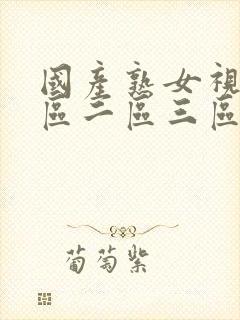 國產熟女視
區二區三區
葡萄紫